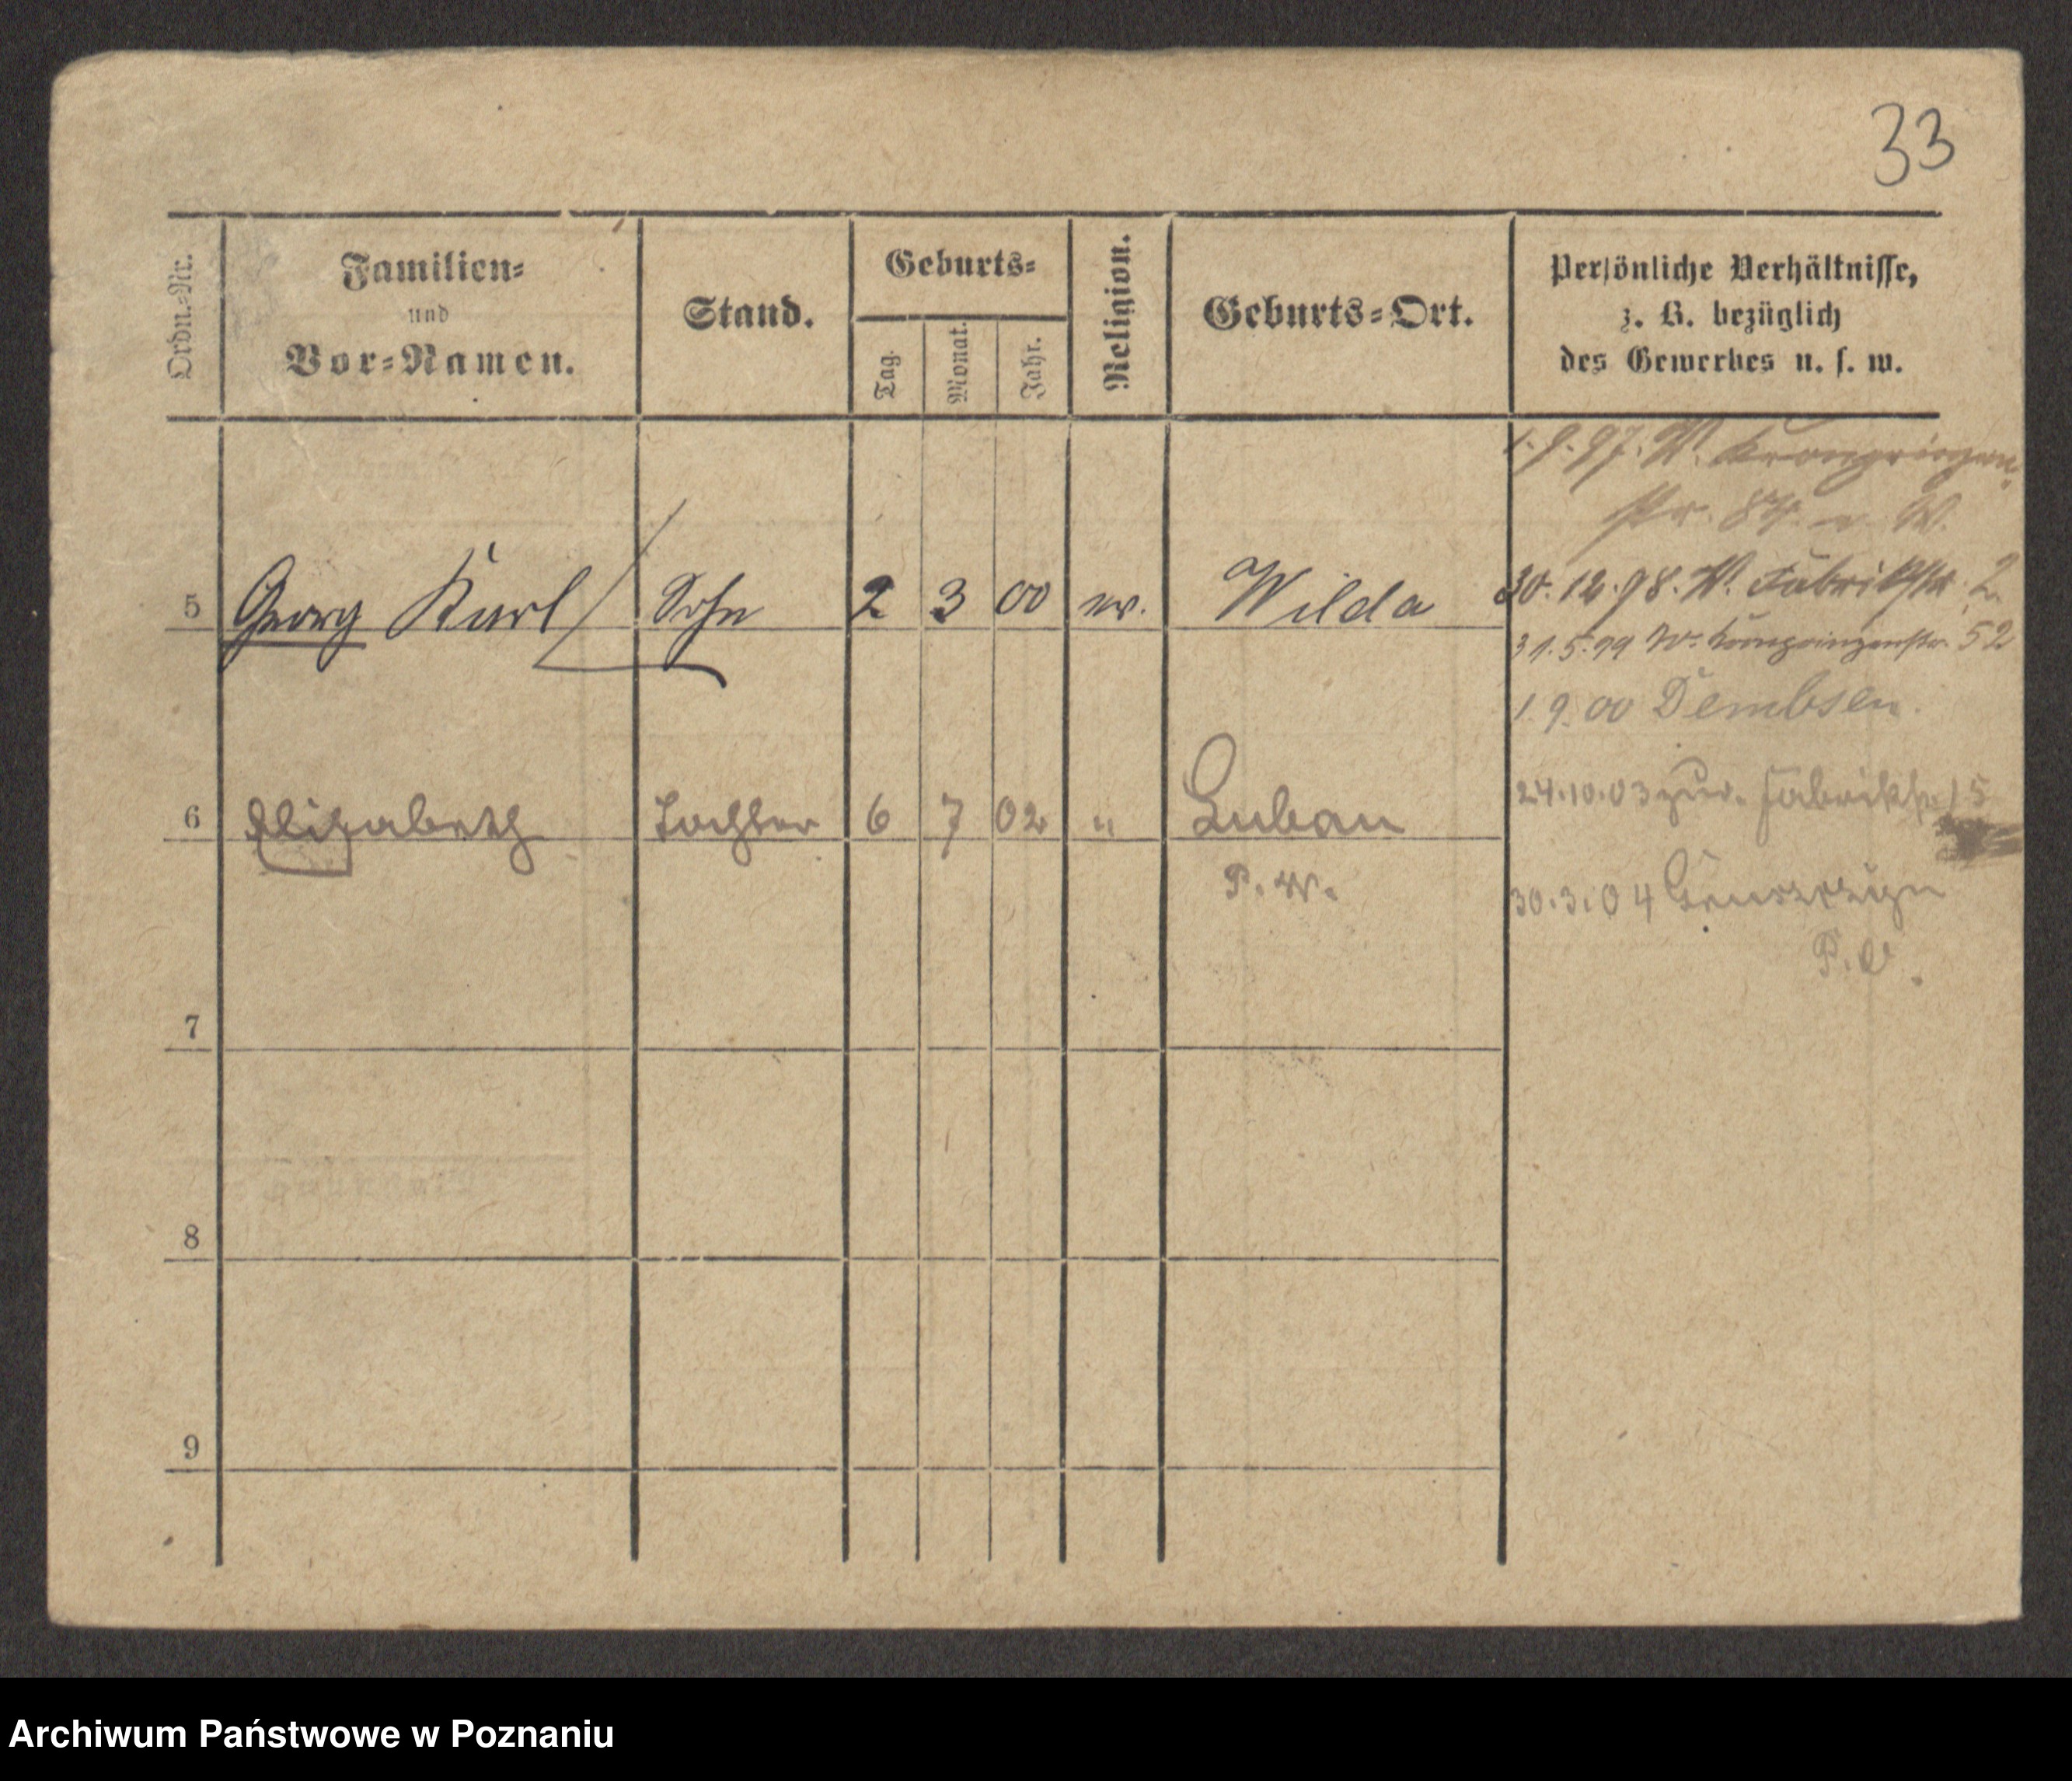 33
Ordn.-Nr.
Familien-
und
Vor-Namen.
Stand.
Geburts-
Tag.
Monat.
Jahr.
Religion.
Geburts-Ort.
Persönliche Verhältnisse,
z. B. bezüglich
des Gewerbes u. s. w.
1.9.97. W. Kronprinzen-
str. 87. W.
5 Georg Karl Sohn 2 3 00 ev. Wilda
30.12.98. W. Fabrikstr. 2
31.5.99 W. Kronprinzenstr. 52
1 9 00 Dembsen.
6 Elisabeth Tochter 6 7 02 " Luban
P. W.
24.10.03 zur. Fabrikstr. 15
30.3.04
P. O.
7
8
9
Archiwum Państwowe w Poznaniu